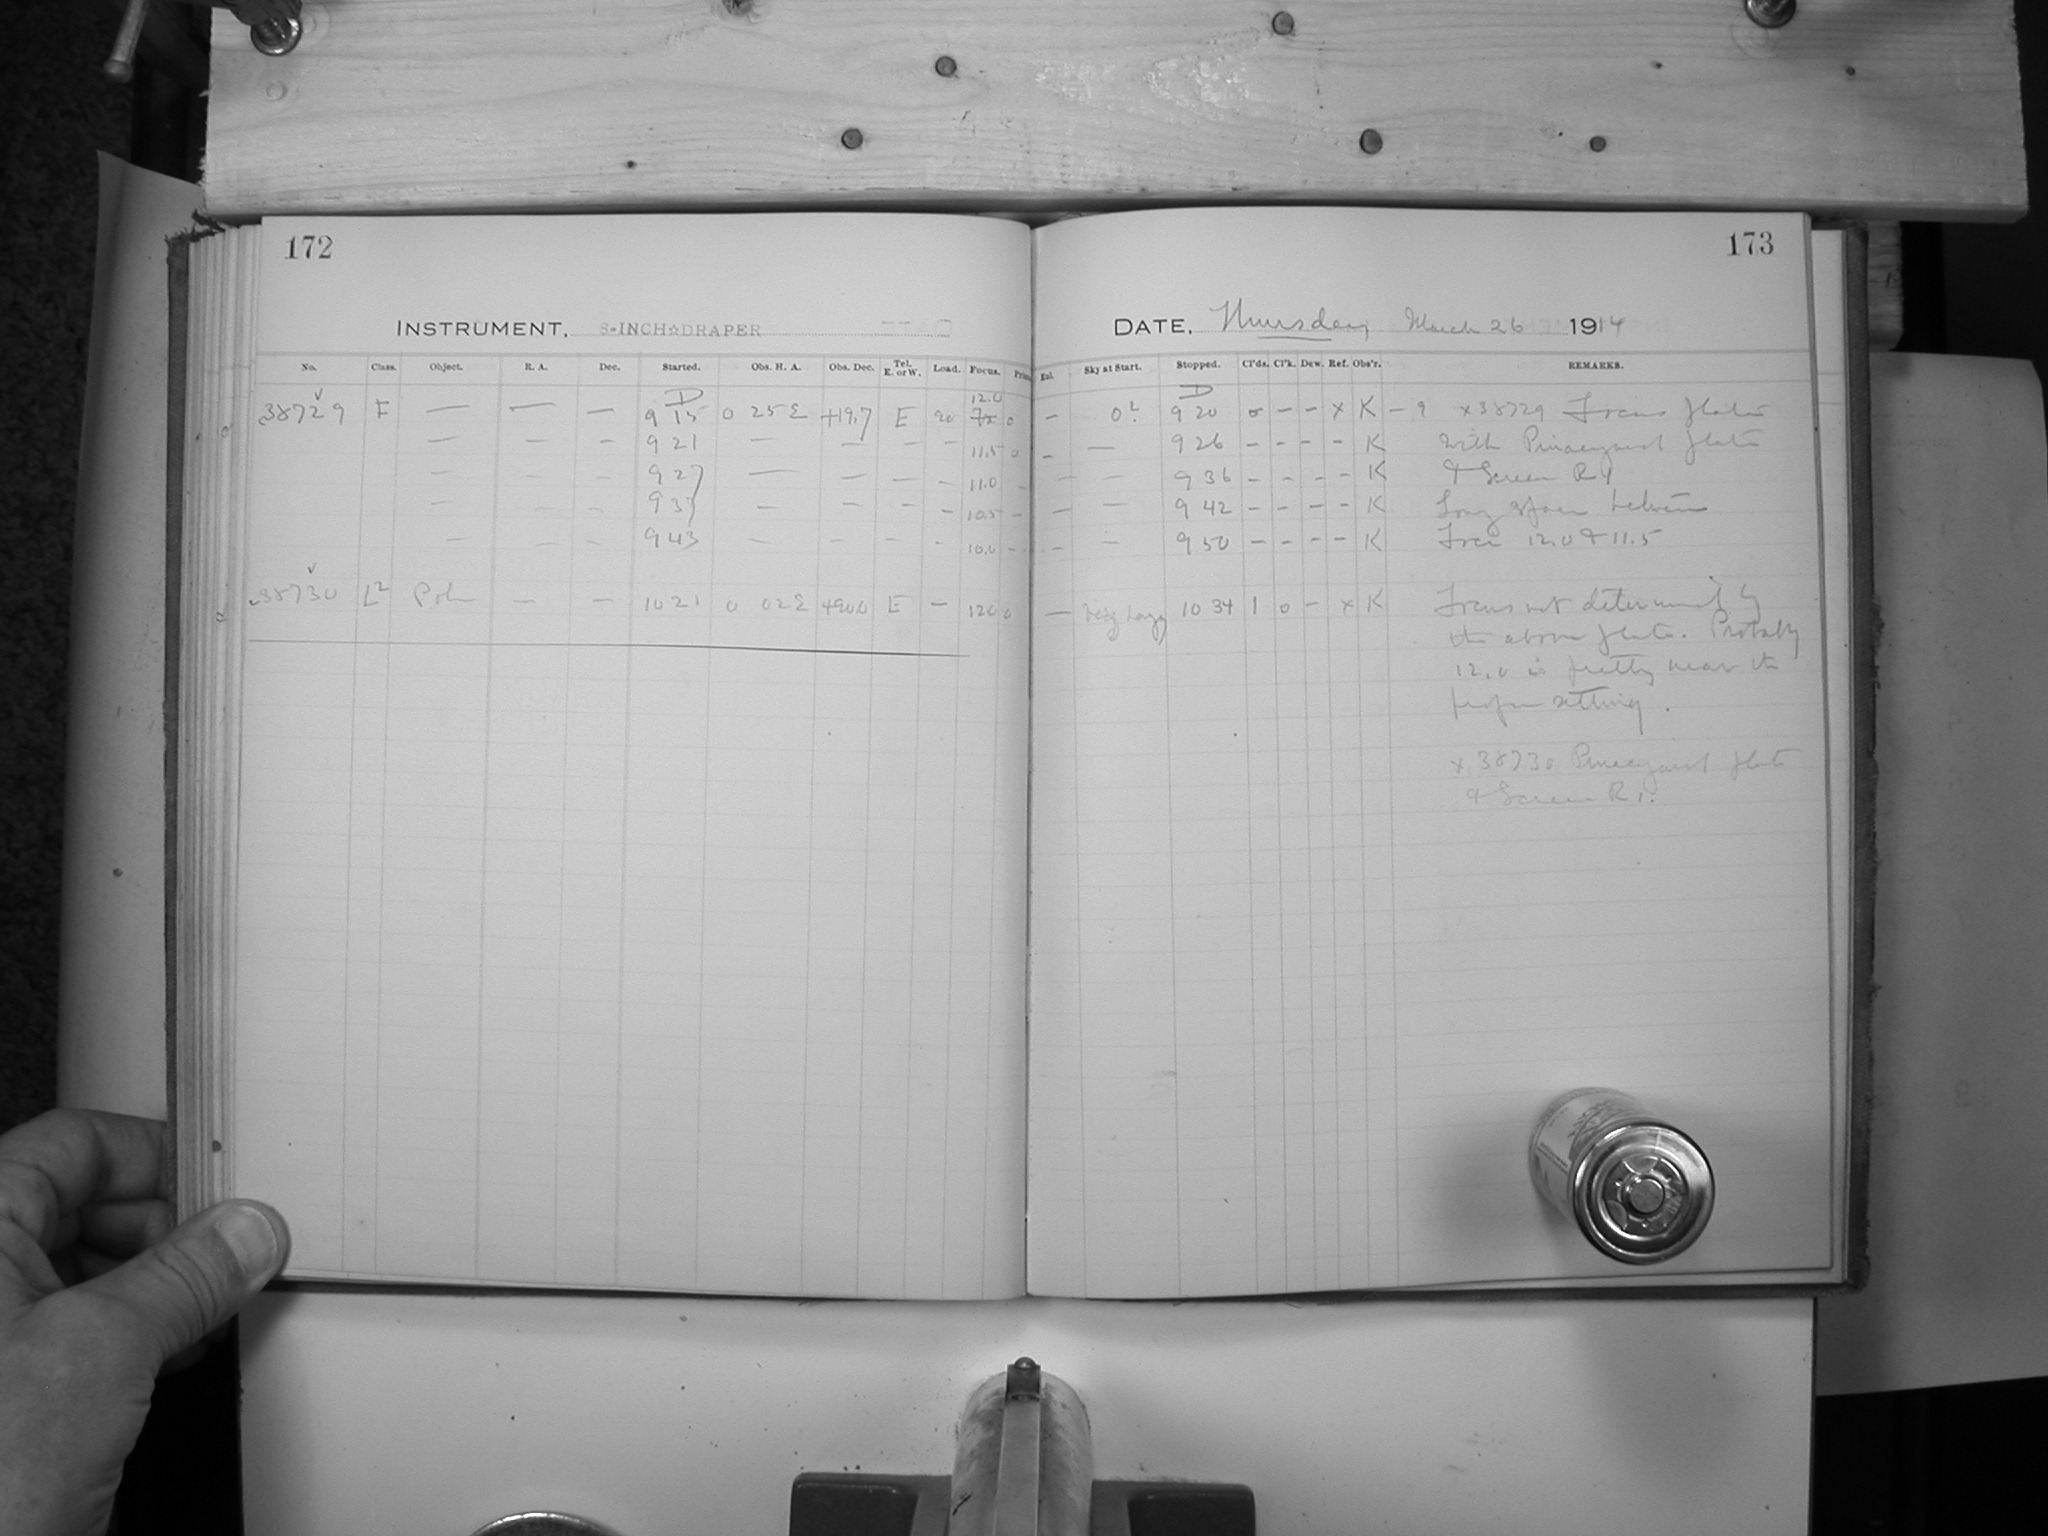 172
INSTRUMENT. 8-INCH☆DRAPER
No. Class. Object. R. A. Dec. Started. Obs. H. A. Obs. Dec. Tel. E. or W. Load. Focus.
D 12.0
38729 F — — — 9 15 0 25 E +19.7 E 20 0
— — — 9 21 — — — — 11.5 0
— — — 9 27 — — — — 11.0 —
— — — 9 37 — — — — 10.5 —
— — — 9 43 — — — — 10.0 —
38730 L² Pole — — 10 21 0 02 E +90.0 E — 12.0 0
173
DATE. Thursday March 26 1914
Sky at Start. Stopped. Cl'ds. Cl'k. Dew. Ref. Obs'r. REMARKS.
D
— 0² 9 20 0 — — x K — 9 x 38729 Focus plate
— — 9 26 — — — — K with Pinacyanol plate
— — 9 36 — — — — K & Screen R1
— — 9 42 — — — — K Long space between
— — 9 50 — — — — K Foci 12.0 & 11.5
— Very hazy 10 34 1 0 — x K Focus not determined by
the above plate. Probably
12.0 is pretty near the
proper setting.
x 38730 Pinacyanol plate
& Screen R1.